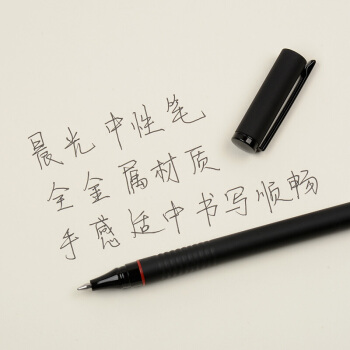 晨光中性笔
全金属材质
手感适中书写顺畅